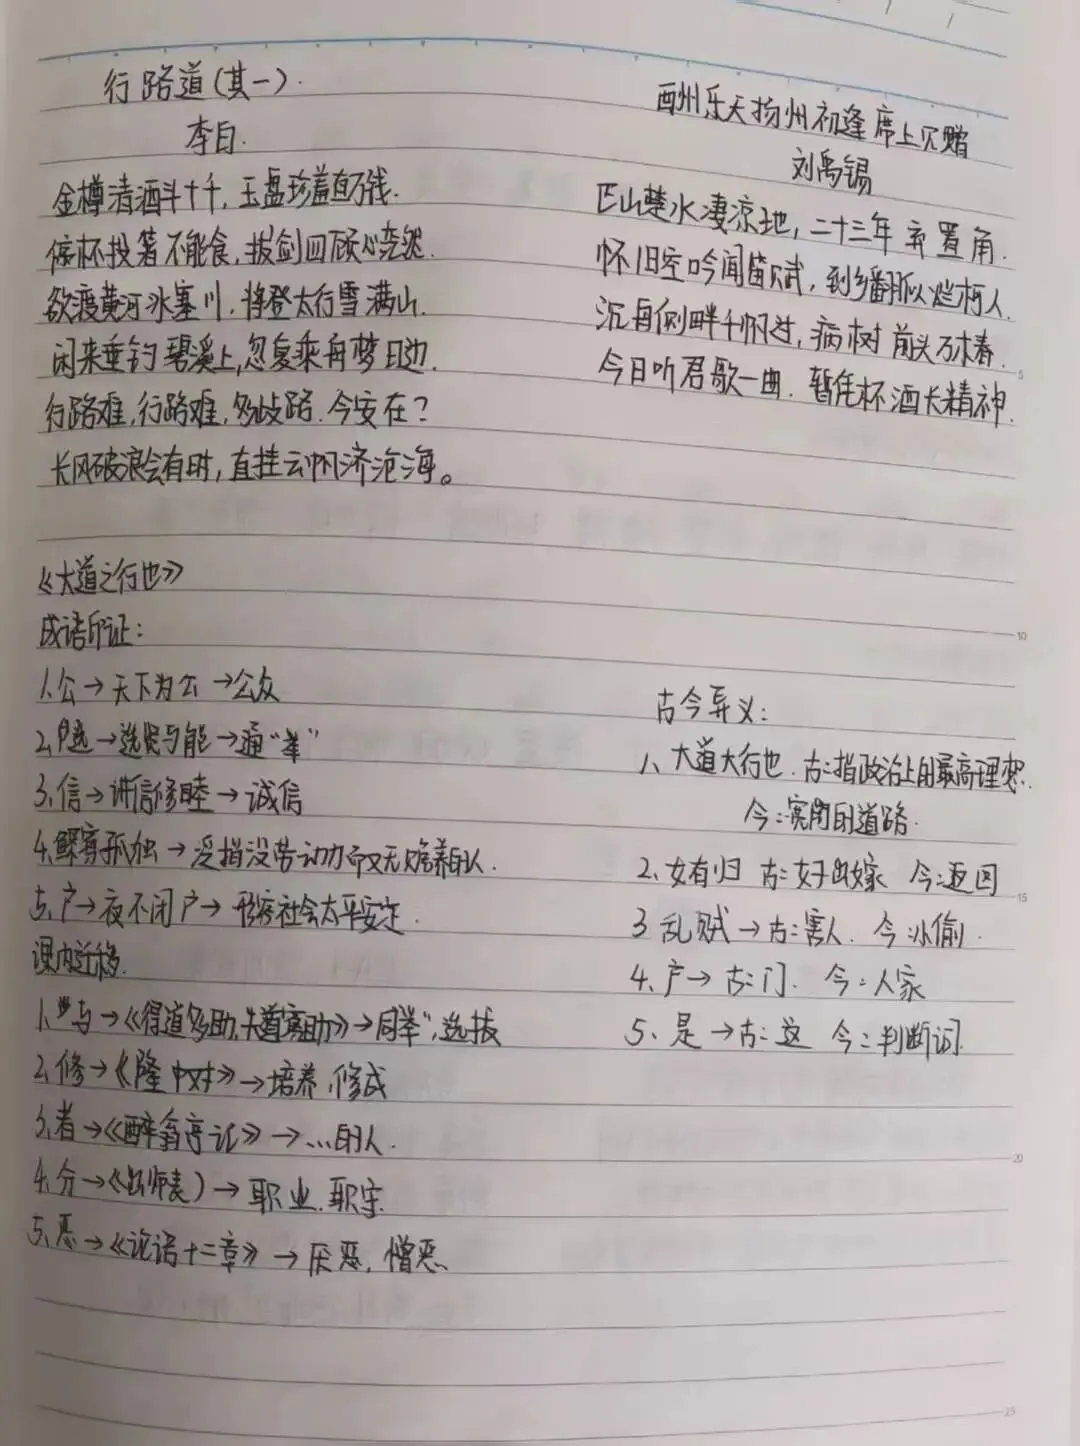 行路道(其一).
李白.
金樽清酒斗十千,玉盘珍羞直万钱.
停杯投箸不能食,拔剑四顾心茫然.
欲渡黄河冰塞川.将登太行雪满山.
闲来垂钓碧溪上,忽复乘舟梦日边.
行路难,行路难,多歧路.今安在?
长风破浪会有时,直挂云帆济沧海。
酬州乐天扬州初逢席上见赠
刘禹锡
巴山楚水凄凉地,二十三年弃置身.
怀旧空吟闻笛赋,到乡翻似烂柯人.
沉舟侧畔千帆过,病树前头万木春.
今日听君歌一曲.暂凭杯酒长精神.
《大道之行也》
成语印证:
1.公→天下为公→公众
2.选→选贤与能→通“举”
3.信→讲信修睦→诚信
4.鳏寡孤独→泛指没劳动力而又无赡养的人.
5.户→夜不闭户→形容社会太平安定.
课内迁移.
1.“与→《得道多助,失道寡助》→同举”,选拔
2.修→《隆中对》→培养,修成
3.者→《醉翁亭记》→...的人.
4.分→《出师表)→职业.职守
5.恶→《论语十二章》→厌恶,憎恶
古今异义:
1、大道大行也.古:指政治上的最高理想.
今:宽阔的道路.
2、女有归 古:女子出嫁 今:返回
3 乱贼→古:害人. 今:小偷.
4、户→古:门. 今:人家
5、是→古:这 今:判断词.